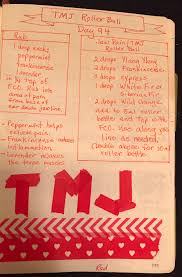 TMJ Roller Ball
Day 94
Rub
1 drop each;
peppermint
frankincense
lavender
in 1/4 tsp of
FCO. Rub into
area of pain
from base of
ear down jawline.
• Peppermint helps
relieve pain.
Frankincense reduces
inflammation.
Lavender relaxes
the tense muscles
Jaw Pain/TMJ
Roller Ball
2 drops Ylang Ylang
2 drops Frankincense
2 drops Cypress
1 drop White Fir/
Siberian Fir
2 drops Wild Orange
add to 5ml roller
bottle and top with
FCO. Use along jaw
line as needed.
Double above for 10ml
roller bottle.
TMJ
Red